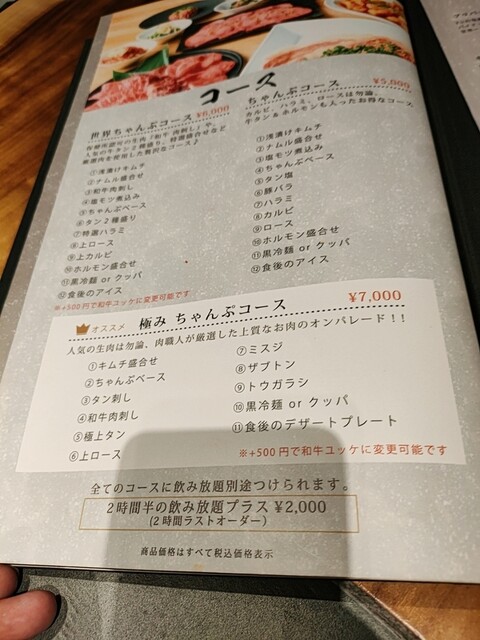 コース
世界ちゃんぷコース ¥6,000
人気の牛タン2種盛り、特選盛合せなど
①浅漬けキムチ
②ナムル盛合せ
③和牛肉刺し
④塩モツ煮込み
⑤ちゃんぷベース
⑥タン2種盛り
⑦特選ハラミ
⑧上ロース
⑨上カルビ
⑩ホルモン盛合せ
⑪黒冷麺 or クッパ
⑫食後のアイス
※+500円で和牛ユッケに変更可能です
ちゃんぷコース ¥5,000
カルビ、ハラミ、ロースは勿論、
牛タン&ホルモンも入ったお得なコース
①浅漬けキムチ
②ナムル盛合せ
③塩モツ煮込み
④ちゃんぷベース
⑤タン塩
⑥豚バラ
⑦ハラミ
⑧カルビ
⑨ロース
⑩ホルモン盛合せ
⑪黒冷麺 or クッパ
⑫食後のアイス
オススメ 極み ちゃんぷコース ¥7,000
人気の生肉は勿論、肉職人が厳選した上質なお肉のオンパレード!!
①キムチ盛合せ
②ちゃんぷベース
③タン刺し
④和牛肉刺し
⑤極上タン
⑥上ロース
⑦ミスジ
⑧ザブトン
⑨トウガラシ
⑩黒冷麺 or クッパ
⑪食後のデザートプレート
※+500円で和牛ユッケに変更可能です
全てのコースに飲み放題別途つけられます。
2時間半の飲み放題プラス ¥2,000
(2時間ラストオーダー)
商品価格はすべて税込価格表示